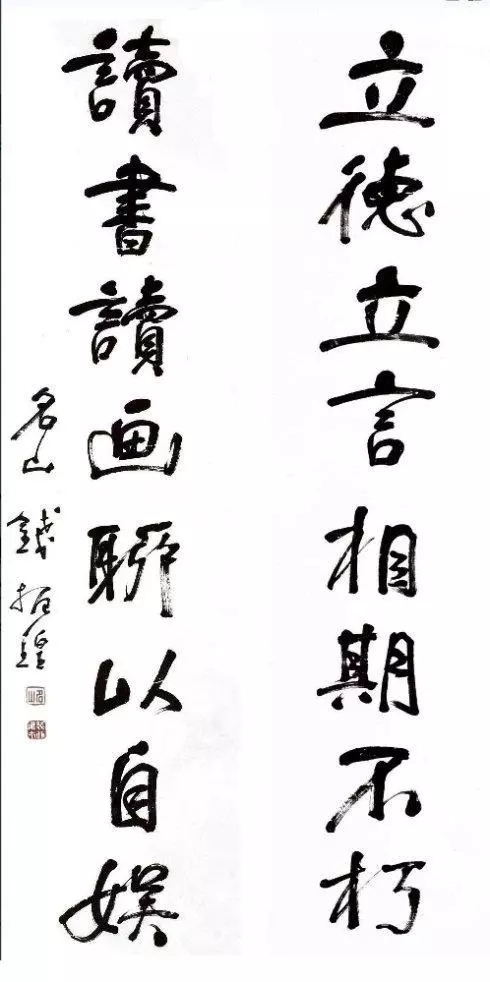 立德立言相期不朽
讀書讀画聊以自娛
名山 錢振鍠